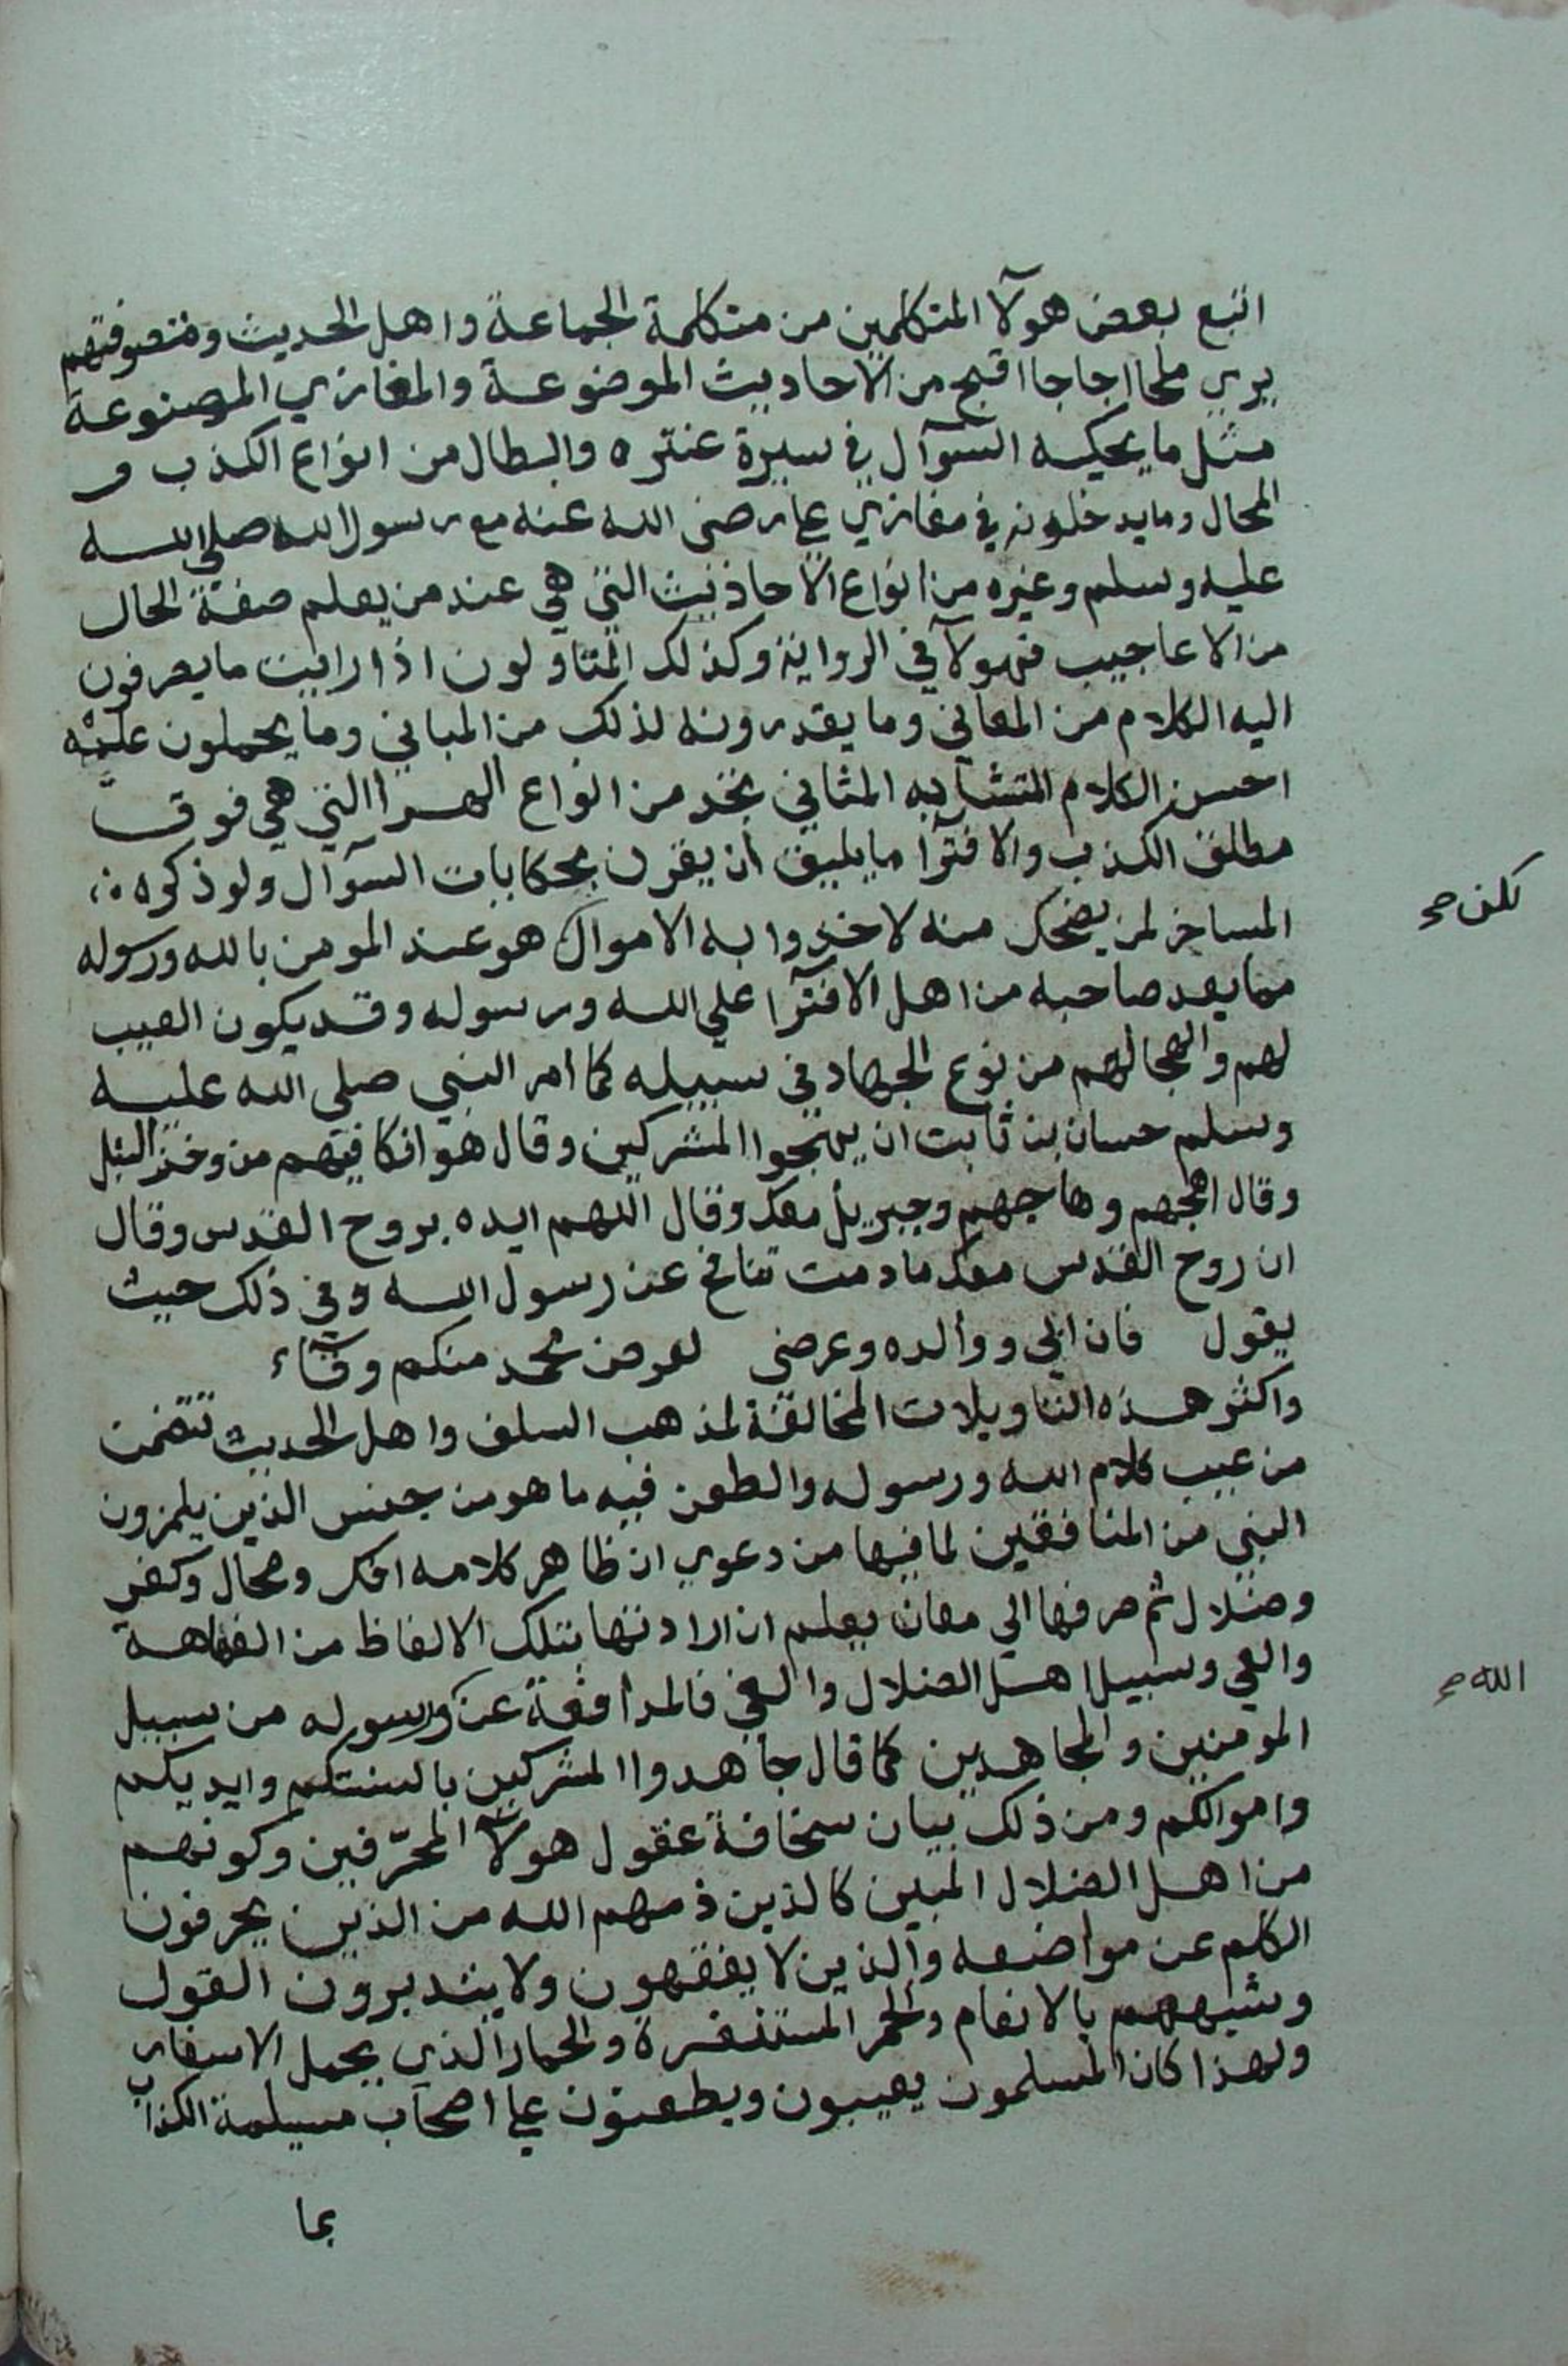 اتبع بعض هولآ المتكلمين من متكلمة الجماعة واهل الحديث ومتصوفتهم
يري ملحا اجاجا اقبح من الاحاديث الموضوعة والمغازي المصنوعة
مثل ما يحكيه السوآل في سيرة عنتره والبطال من انواع الكذب و
المحال وما يدخلونه في مغازي علي رضي الله عنه مع رسول الله صلي الله
عليه وسلم وغيره من انواع الاحاديث التي هي عند من يعلم صفة الحال
من الاعاجيب فهولآ في الرواية وكذلك المتاولون اذا رايت ما يصرفون
اليه الكلام من المعاني وما يقدرونه لذلك من المباني وما يحملون عليه
احسن الكلام المتشابه المثاني تجد من انواع الهرا التي هي فوق
مطلق الكذب والافترآ ما يليق ان يقرن بحكايات السوآل ولو ذكره
المساخر لمن يضحك منه لاخذوا به الاموال هو عند المومن بالله ورسوله
لكن صح
مما يعد صاحبه من اهل الافترآ علي الله ورسوله وقد يكون العيب
لهم والهجا لهم من نوع الجهاد في سبيله كما امر النبي صلي الله عليه
وسلم حسان بن ثابت ان يهجوا المشركين وقال هو انكا فيهم من وخز النبل
وقال اهجهم وهاجهم وجبريل معك وقال اللهم ايده بروح القدس وقال
ان روح القدس معك ما دمت تنافح عن رسول الله وفي ذلك حيث
يقول فان ابي ووالده وعرضي لعرض محمد منكم وقاء
واكثر هذه التاويلات المخالفة لمذهب السلف واهل الحديث تتضمن
من عيب كلام الله ورسوله والطعن فيه ما هو من جنس الذين يلمزون
النبي من المنافقين لما فيها من دعوي ان ظاهر كلامه افك ومحال وكفر
وضلال ثم صرفها الي معان يعلم ان ارادتها بتلك الالفاظ من الفهاهة
والعي وسبيل اهل الضلال والغي فالمدافعة عن ورسوله من سبيل
الله صح
المومنين والمجاهدين كما قال جاهدوا المشركين بالسنتكم وايديكم
واموالكم ومن ذلك بيان سخافة عقول هولآ المحرّفين وكونهم
من اهل الضلال المبين كالذين ذمهم الله من الذين يحرفون
الكلم عن مواضعه والذين لا يفقهون ولا يتدبرون القول
وشبههم بالانعام والحمر المستنفرة والحمار الذي يحمل الاسفار
ولهذا كان المسلمون يعيبون ويطعنون علي اصحاب مسيلمة الكذاب
بما